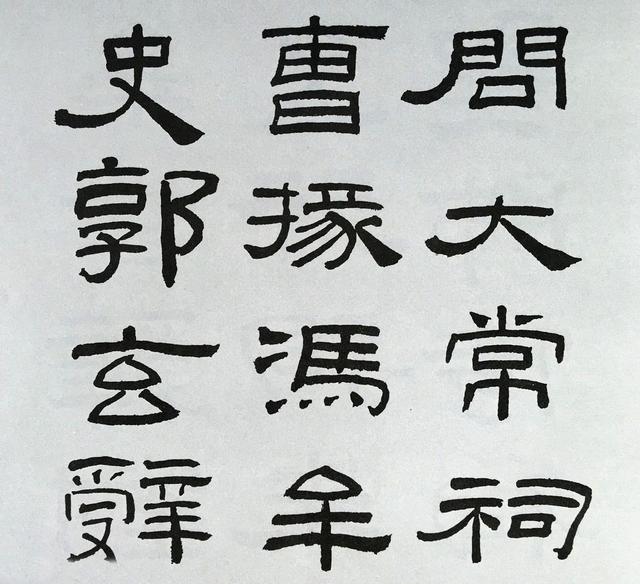 問大常祠
曹掾馮牟
史郭玄辤